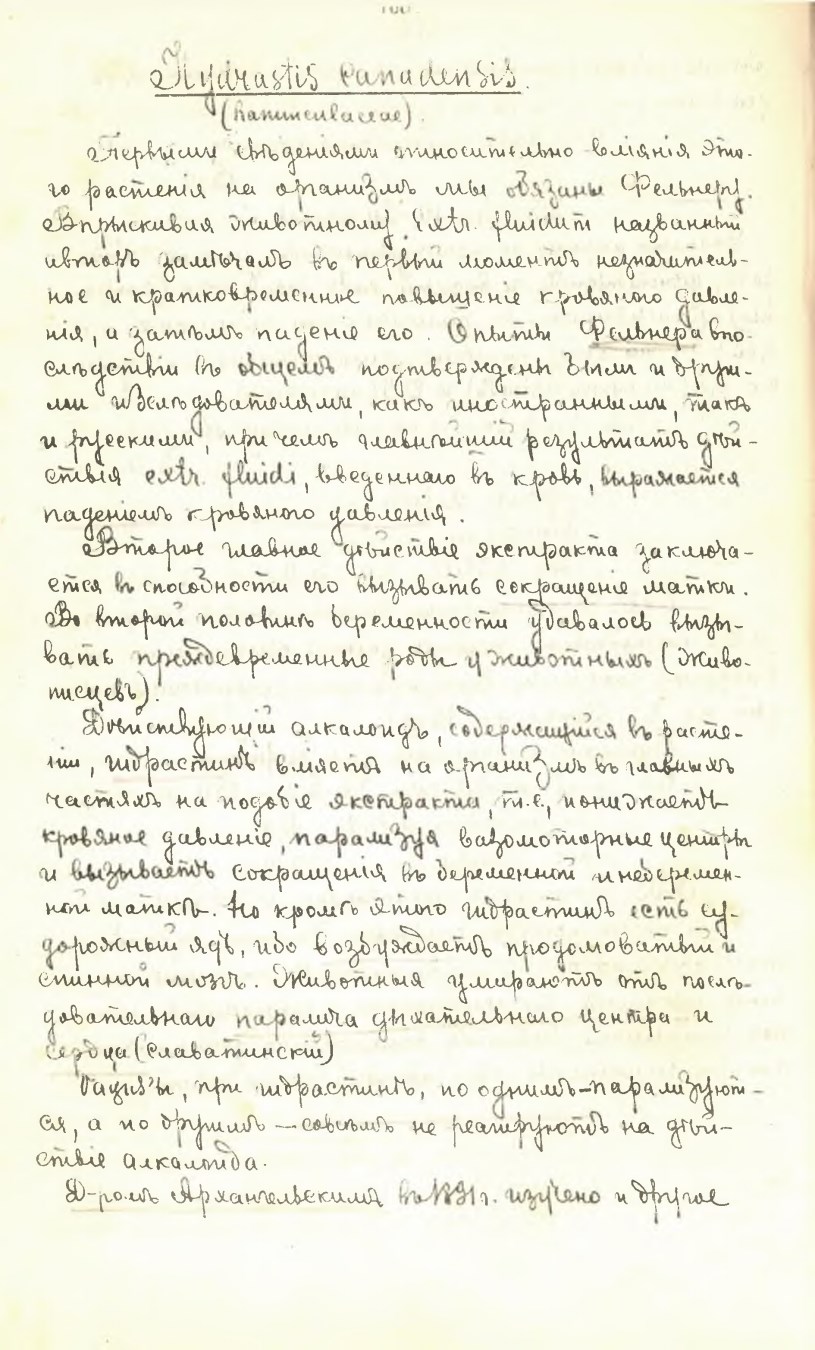 Hydrastis canadensis.
(Ranunculaceae).
Первыми свѣдѣніями относительно вліянія это-
го растенія на организмъ мы обязаны Фельнеру.
Впрыскивая животному extr. fluidum названный
авторъ замѣчалъ въ первый моментъ незначитель-
ное и кратковременное повышеніе кровяного давле-
нія, а затѣмъ паденіе его. Опыты Фельнера впо-
слѣдствіи въ общемъ подтверждены были и други-
ми изслѣдователями, какъ иностранными, такъ
и русскими, при чемъ главнѣйшій результатъ дѣй-
ствія extr. fluidi, введеннаго въ кровь, выражается
паденіемъ кровяного давленія.
Второе главное дѣйствіе экстракта заключа-
ется въ способности его вызывать сокращеніе матки.
Во второй половинѣ беременности удавалось вызы-
вать преждевременные роды у животныхъ (Живо-
писцевъ).
Дѣйствующій алкалоидъ, содержащійся въ расте-
ніи, гидрастинъ вліяетъ на организмъ въ главныхъ
частяхъ на подобіе экстракта, т.е., понижаетъ
кровяное давленіе, парализуя вазомоторные центры
и вызываетъ сокращенія въ беременной и неберемен-
ной маткѣ. Но кромѣ этого гидрастинъ есть су-
дорожный ядъ, ибо возбуждаетъ продолговатый и
спинной мозгъ. Животныя умираютъ отъ послѣ-
довательнаго паралича дыхательнаго центра и
сердца (Славатинскій)
Vagus'ы, при гидрастинѣ, по однимъ-парализуют-
ся, а по другимъ — совсѣмъ не реагируютъ на дѣй-
ствіе алкалоида.
Д-ромъ Архангельскимъ въ 1891 г. изучено и другое